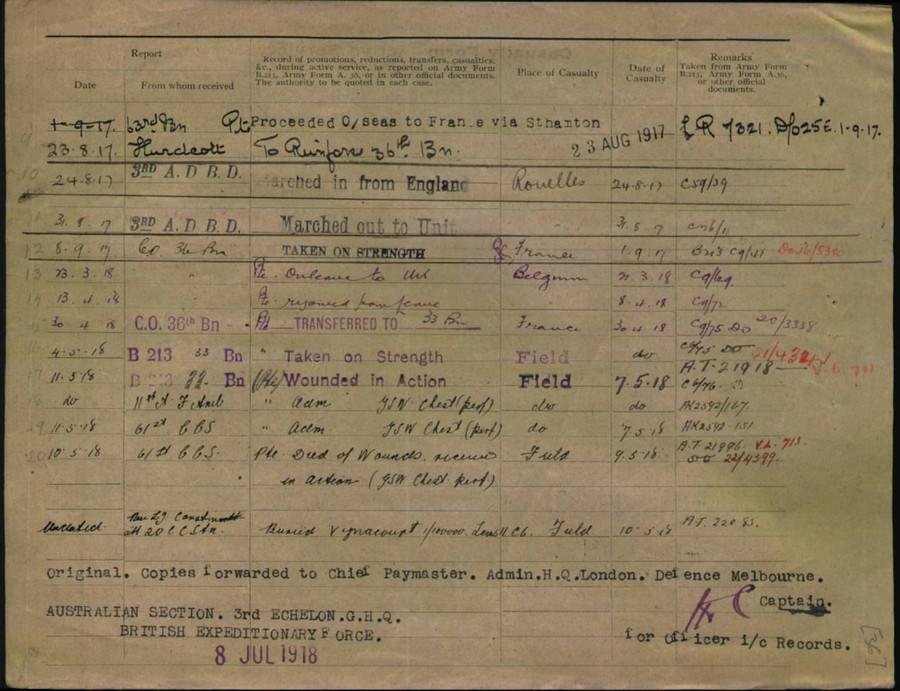 Report
Date
From whom received
Record of promotions, reductions, transfers, casualties, &c., during active service, as reported on Army Form B.213, Army Form A. 36, or in other official documents. The authority to be quoted in each case.
Place of Casualty
Date of Casualty
Remarks
Taken from Army Form B.213, Army Form A.36, or other official documents.
1-9-17. 63rd Bn Pte Proceeded O/seas to France via Sthamton L R 7321. D/O25E. 1-9-17.
23.8.17. Hurdcott To Reinforce 36th Bn. 23 AUG 1917
24.8.17 3RD A.D.B.D. Marched in from England Rouelles 24.8.17 C59/39
31.8.17 3RD A.D.B.D. Marched out to Unit 31.8.7
8.9.17 Co. 36 Bn TAKEN ON STRENGTH France 1.9.17
23.3.18 " Pte. On leave to UK Belgium 21.3.18 C9/69
13.4.18 " Pte. rejoined from leave " 8.4.18 C9/72
30 4 18 C.O. 36th Bn Pte TRANSFERRED TO 33 Bn France 30.4.18 C9/75 DO 20/3338
4-5-18 B 213 33 Bn " Taken on Strength Field do
11.5.18 B 213 33 Bn (Pte) Wounded in Action Field 7.5.18 A.T.21918
do 11th A F Amb " Adm GSW Chest (perf) do do AK2592/167
11.5.18 61st CCS " Adm GSW Chest (perf) do 7 5.18 AK2592.151
10.5.18 61st C.C.S. Pte Died of Wounds received Field 9.5.18 A.T. 21986 V.L. 713.
DO 22/4399
in action (GSW Chest perf)
Undated Rev LJ
att 20 CCStn. Buried Vignacourt 1/100000 Lens 11 C6. Field 10.5.18 A.T. 22085.
Original. Copies forwarded to Chief Paymaster. Admin.H.Q.London. Defence Melbourne.
Captain.
AUSTRALIAN SECTION. 3rd ECHELON.G.H.Q.
BRITISH EXPEDITIONARY FORCE.
for Officer i/c Records.
8 JUL 1918
[36]